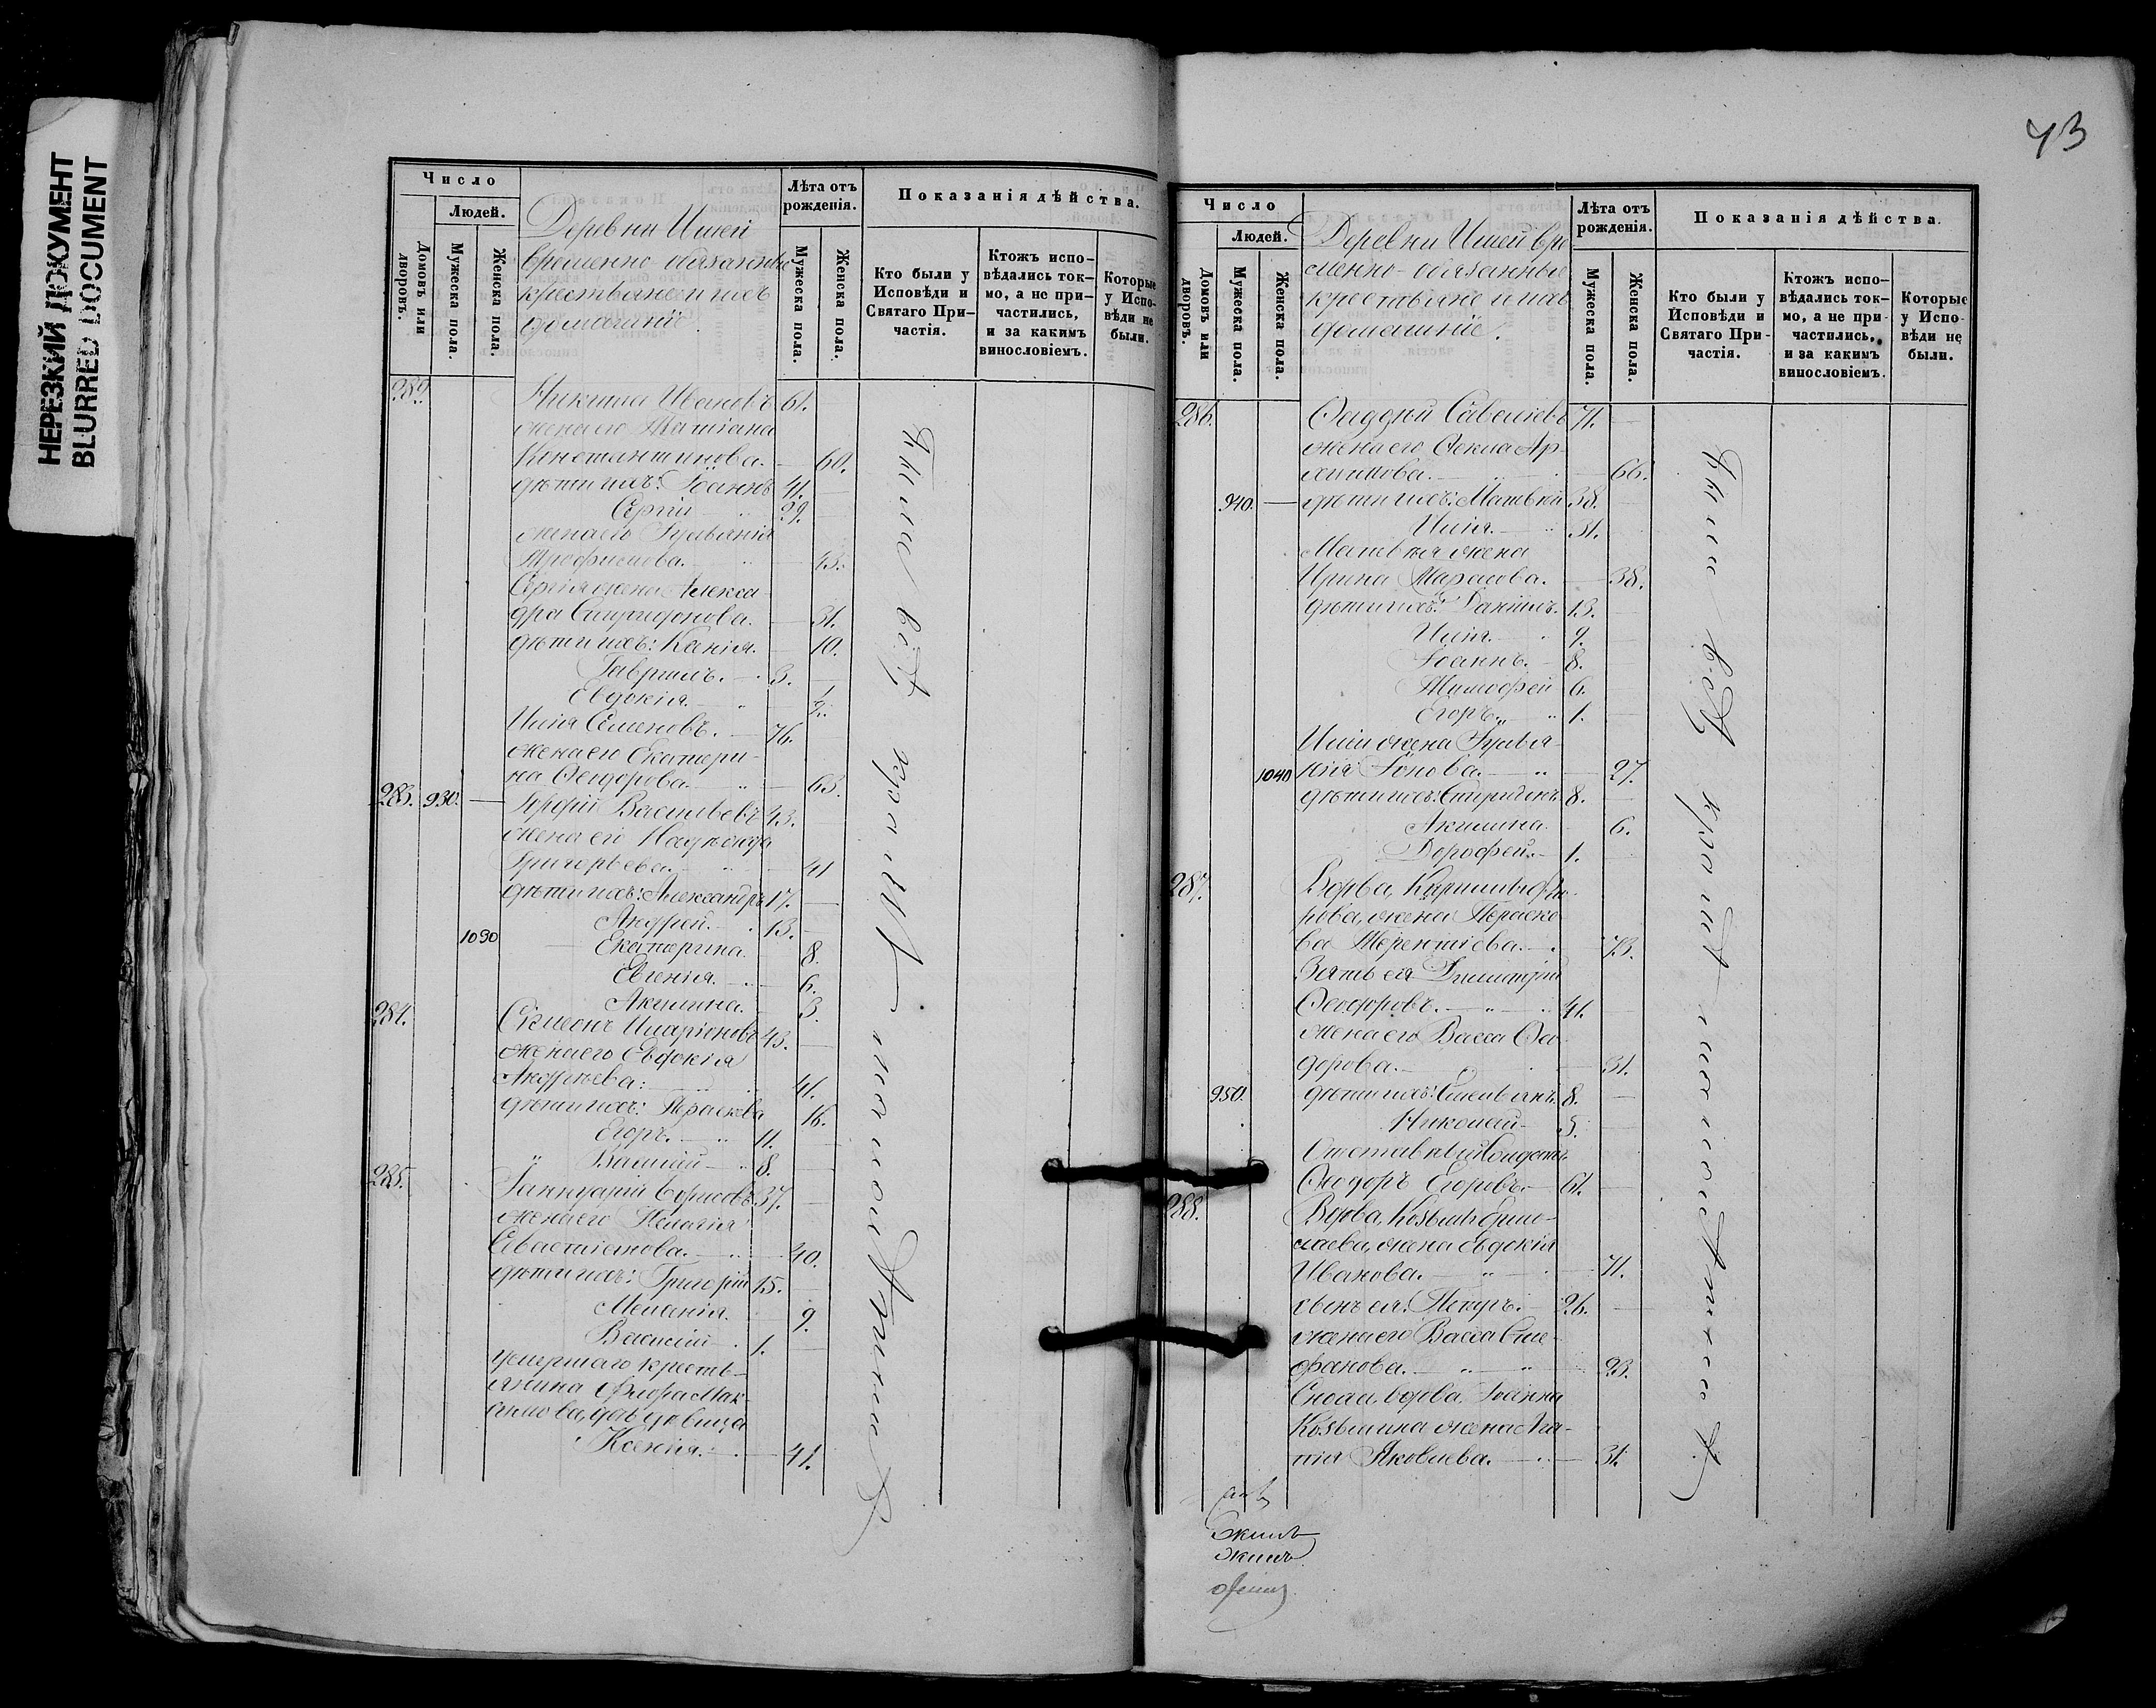 НЕРЕЗКИЙ ДОКУМЕНТ
BLURRED DOCUMENT
Число
Людей.
Домовъ или дворовъ.
Мужеска пола.
Женска пола.
Деревни
временно обязанные
крестьяне и ихъ
домашніе.
Лѣта отъ рожденія.
Мужеска пола.
Женска пола.
Показанія дѣйства.
Кто были у Исповѣди и Святаго Причастія.
Ктожъ исповѣдались токмо, а не причастились, и за какимъ винословіемъ.
Которые у Исповѣди не были.
282. Никита Ивановъ 61.
жена его Татіана
Константинова. 60.
дѣти ихъ: Іоаннъ 41.
Сергій 29.
жена его Іуліанія
Трофимова. 43.
Сергія жена Алекса-
дра Спиридонова. 31.
дѣти ихъ: Ксенія. 10.
Гавріилъ. 3.
Евдокія.
Илія Семеновъ. 76.
жена его Екатери-
на Ѳеодорова. 63.
283. 930. Васильевъ 43.
жена его Надежда
Григорьева. 41
дѣти ихъ: Александръ 17.
Андрей. 13.
1030 Екатерина. 8.
Евгенія. 6.
Акилина. 3.
284. Сѵмеонъ Иларіоновъ 43.
жена его Евдокія
Андреева: 41.
дѣти ихъ: Параскева 16.
Егоръ. 11.
Василій 8.
285. Іаннуарій Борисовъ 37.
жена его Пелагія
Севастіанова. 40.
дѣти ихъ: Григорій 15.
Меланія. 9.
Василій 1.
умершаго кресть-
янина Флора Мак-
симова, дѣвица
Ксенія. 41.
73
Число
Людей.
Домовъ или дворовъ.
Мужеска пола.
Женска пола.
Деревни вре
менно-обязанные
крестьяне и ихъ
домашніе.
Лѣта отъ рожденія.
Мужеска пола.
Женска пола.
Показанія дѣйства.
Кто были у Исповѣди и Святаго Причастія.
Ктожъ исповѣдались токмо, а не причастились, и за какимъ винословіемъ.
Которые у Исповѣди не были.
286. Савельевъ 71.
жена его Ѳекла Ар
хипова. 66.
940. дѣти ихъ: Матвей 38.
Илія. 31.
Матвея жена
Ирина Маркова. 38.
дѣти ихъ: Даніилъ. 13.
Илія. 9.
Іоаннъ. 8.
Тимофей 6.
Егоръ. 1.
Иліи жена Іуліа-
1040 нія Іонова. 27.
дѣти ихъ: Спиридонъ. 8.
Акилина. 6.
Дорофей. 1.
287. Вдова, Кирилла Ѳео-
рова, жена Параске-
ва Терентіева. 73.
Зять ея Димитрій
Ѳеодоровъ. 41.
жена его Васса Ѳео-
дорова. 31.
950. дѣти ихъ: 8.
Николай 5.
Отставный Солдатъ.
Ѳеодоръ Егоровъ. 61.
288. Вдова, Козьмы Ермо-
лаева, жена Евдокія
Иванова. 71.
сынъ ея: Петръ. 26.
жена его Васса Сте-
фанова. 23.
Сноха, вдова, Іоанна
Козьмина жена Ага-
пія Яковлева. 31.